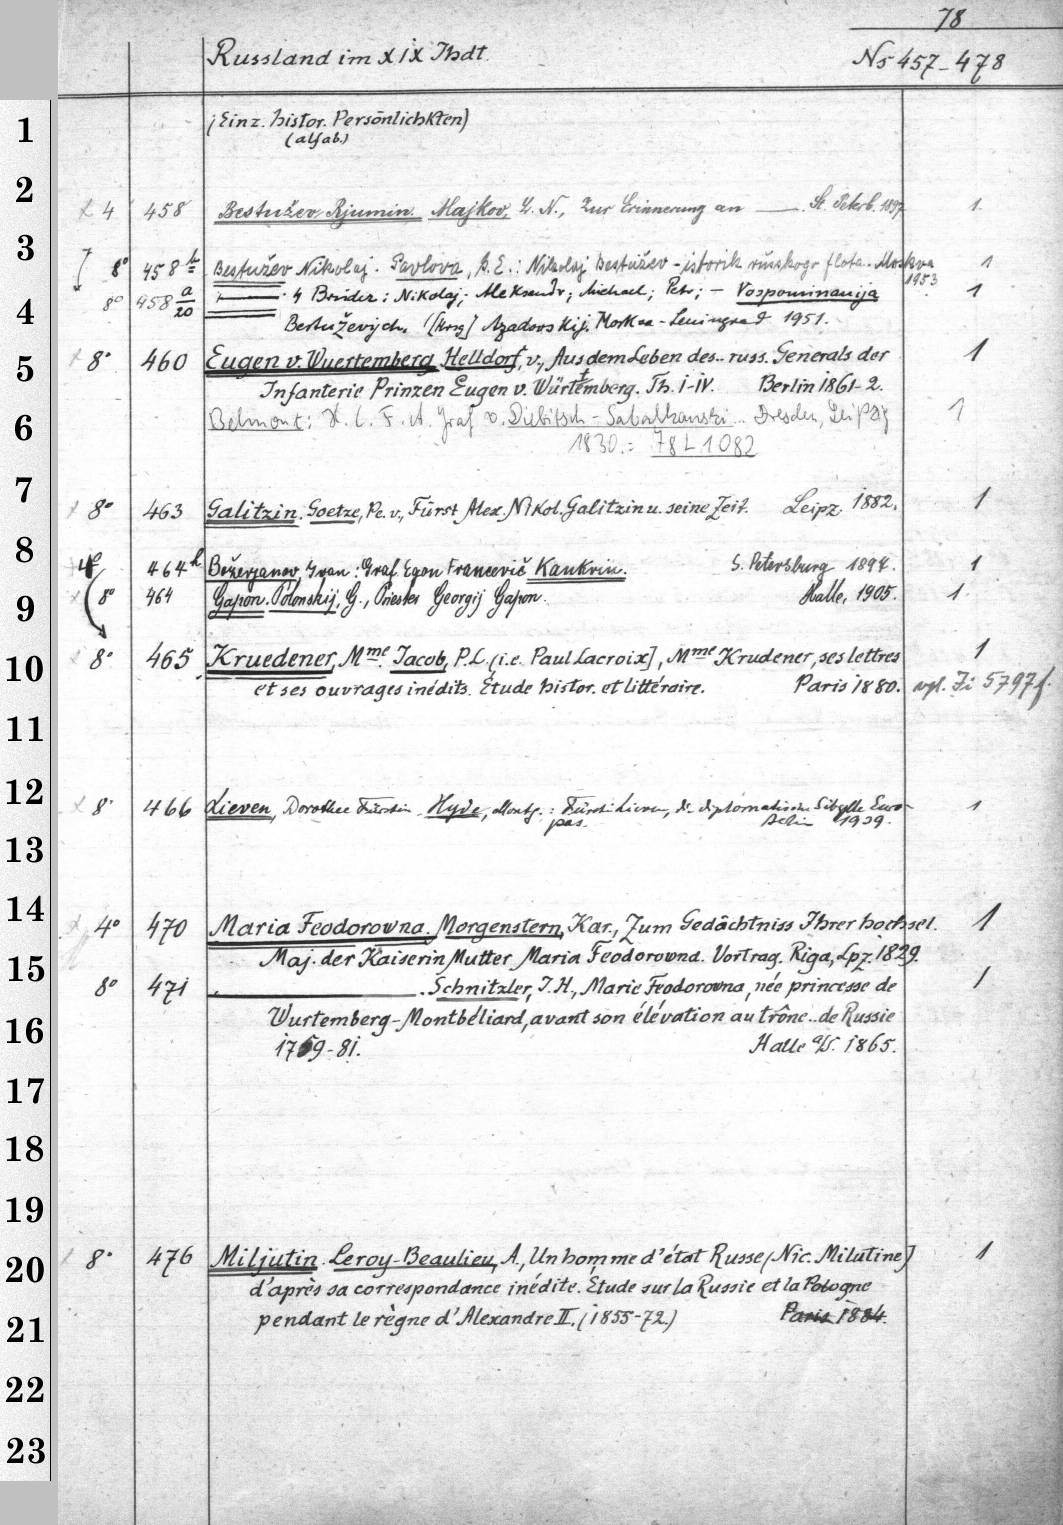 78
Russland im XIX Jhdt.
No 457-478
1
(Einz. histor. Persönlichkten)
(alfab.)
2
4 458 Bestužev Rjumin. Majkov, L. N., Zur Erinnerung an —— . St. Petersb. 1897 1
3
8° 458 b Bestužev Nikolaj. Pavlova, : Nikolaj Bestužev - istorik russkogo flota. Moskva 1953 1
4
8° 458 a/20 —— . 4 Brüder: Nikolaj; Aleksandr; Michael; Petr; — Vospominanija 1
Bestuževych. Azadovskij. Moskva - Leningrad 1951.
5
8° 460 Eugen v. Wuertemberg. Helldorf, v., Aus dem Leben des.. russ. Generals der 1
Infanterie Prinzen Eugen v. Württemberg. Th. I-IV. Berlin 1861-2.
6
Belmont: H. C. F. A. Graf v. Diebitsch - Sabalkanski... Dresden, Leipzig 1
1830.= 78 L 1082
7
8° 463 Galitzin. Goetze, Pe. v., Fürst Alex. Nikol. Galitzin u. seine Zeit. Leipz. 1882. 1
8
4° 464 Božerjanov, Ivan: Graf Egon Francevič Kankrin. S. Petersburg 1897. 1
9
8° 464 Gapon. Polonskij, G., Priester Georgij Gapon. Halle, 1905. 1
10
8° 465 Kruedener, Mme. Jacob, P. L. (i.e. Paul Lacroix], Mme Krudener, ses lettres 1
et ses ouvrages inédits. Étude histor. et littéraire. Paris 1880. vgl. Fi 5797f.
11
12
8° 466 Lieven, Dorothee Fürstin. Hyde, Montg.: Fürstin Lieven, die diplomatische Sibylle Euro- 1
pas. Berlin 1939.
13
14
4° 470 Maria Feodorowna. Morgenstern, Kar., Zum Gedächtniss Ihrer hochsel. 1
Maj. der Kaiserin Mutter Maria Feodorowna. Vortrag. Riga, Lpz. 1829.
15
8° 471 —— . Schnitzler, J. H., Marie Feodorowna, née princesse de 1
16
Wurtemberg-Montbéliard, avant son élévation au trône.. de Russie
1759-81. Halle a/S. 1865.
17
18
19
20
8° 476 Miljutin. Leroy-Beaulieu, A., Un homme d'état Russe (Nic. Milutine) 1
d'après sa correspondance inédite. Étude sur la Russie et la Pologne
21
pendant le règne d'Alexandre II. (1855-72.) Paris 1884.
22
23